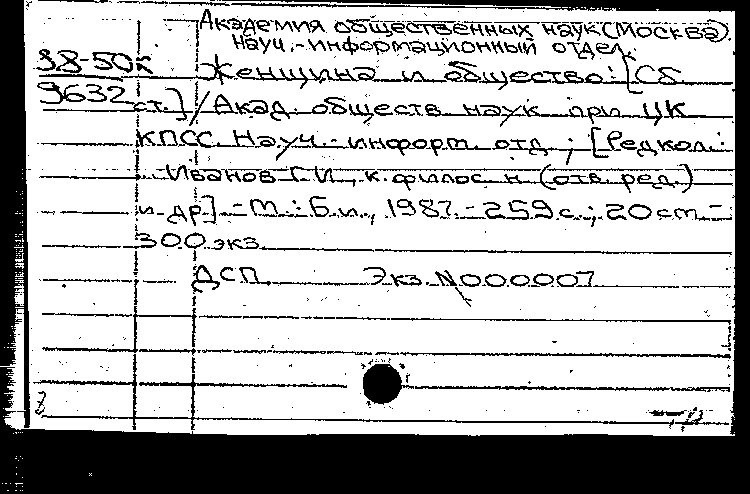 Академия общественных наук (Москва).
Науч.-информационный отдел.
98-50к Женщина и общество: [Сб.
9632 ст.] / Акад. обществ. наук при ЦК
КПСС. Науч.-информ. отд.; [Редкол.:
Иванов Г.И., к. филос. н. (отв. ред.)
и др.] - М.: Б.и., 1987. - 259 с.; 20 см -
300 экз.
ДСП. Экз. N 000007